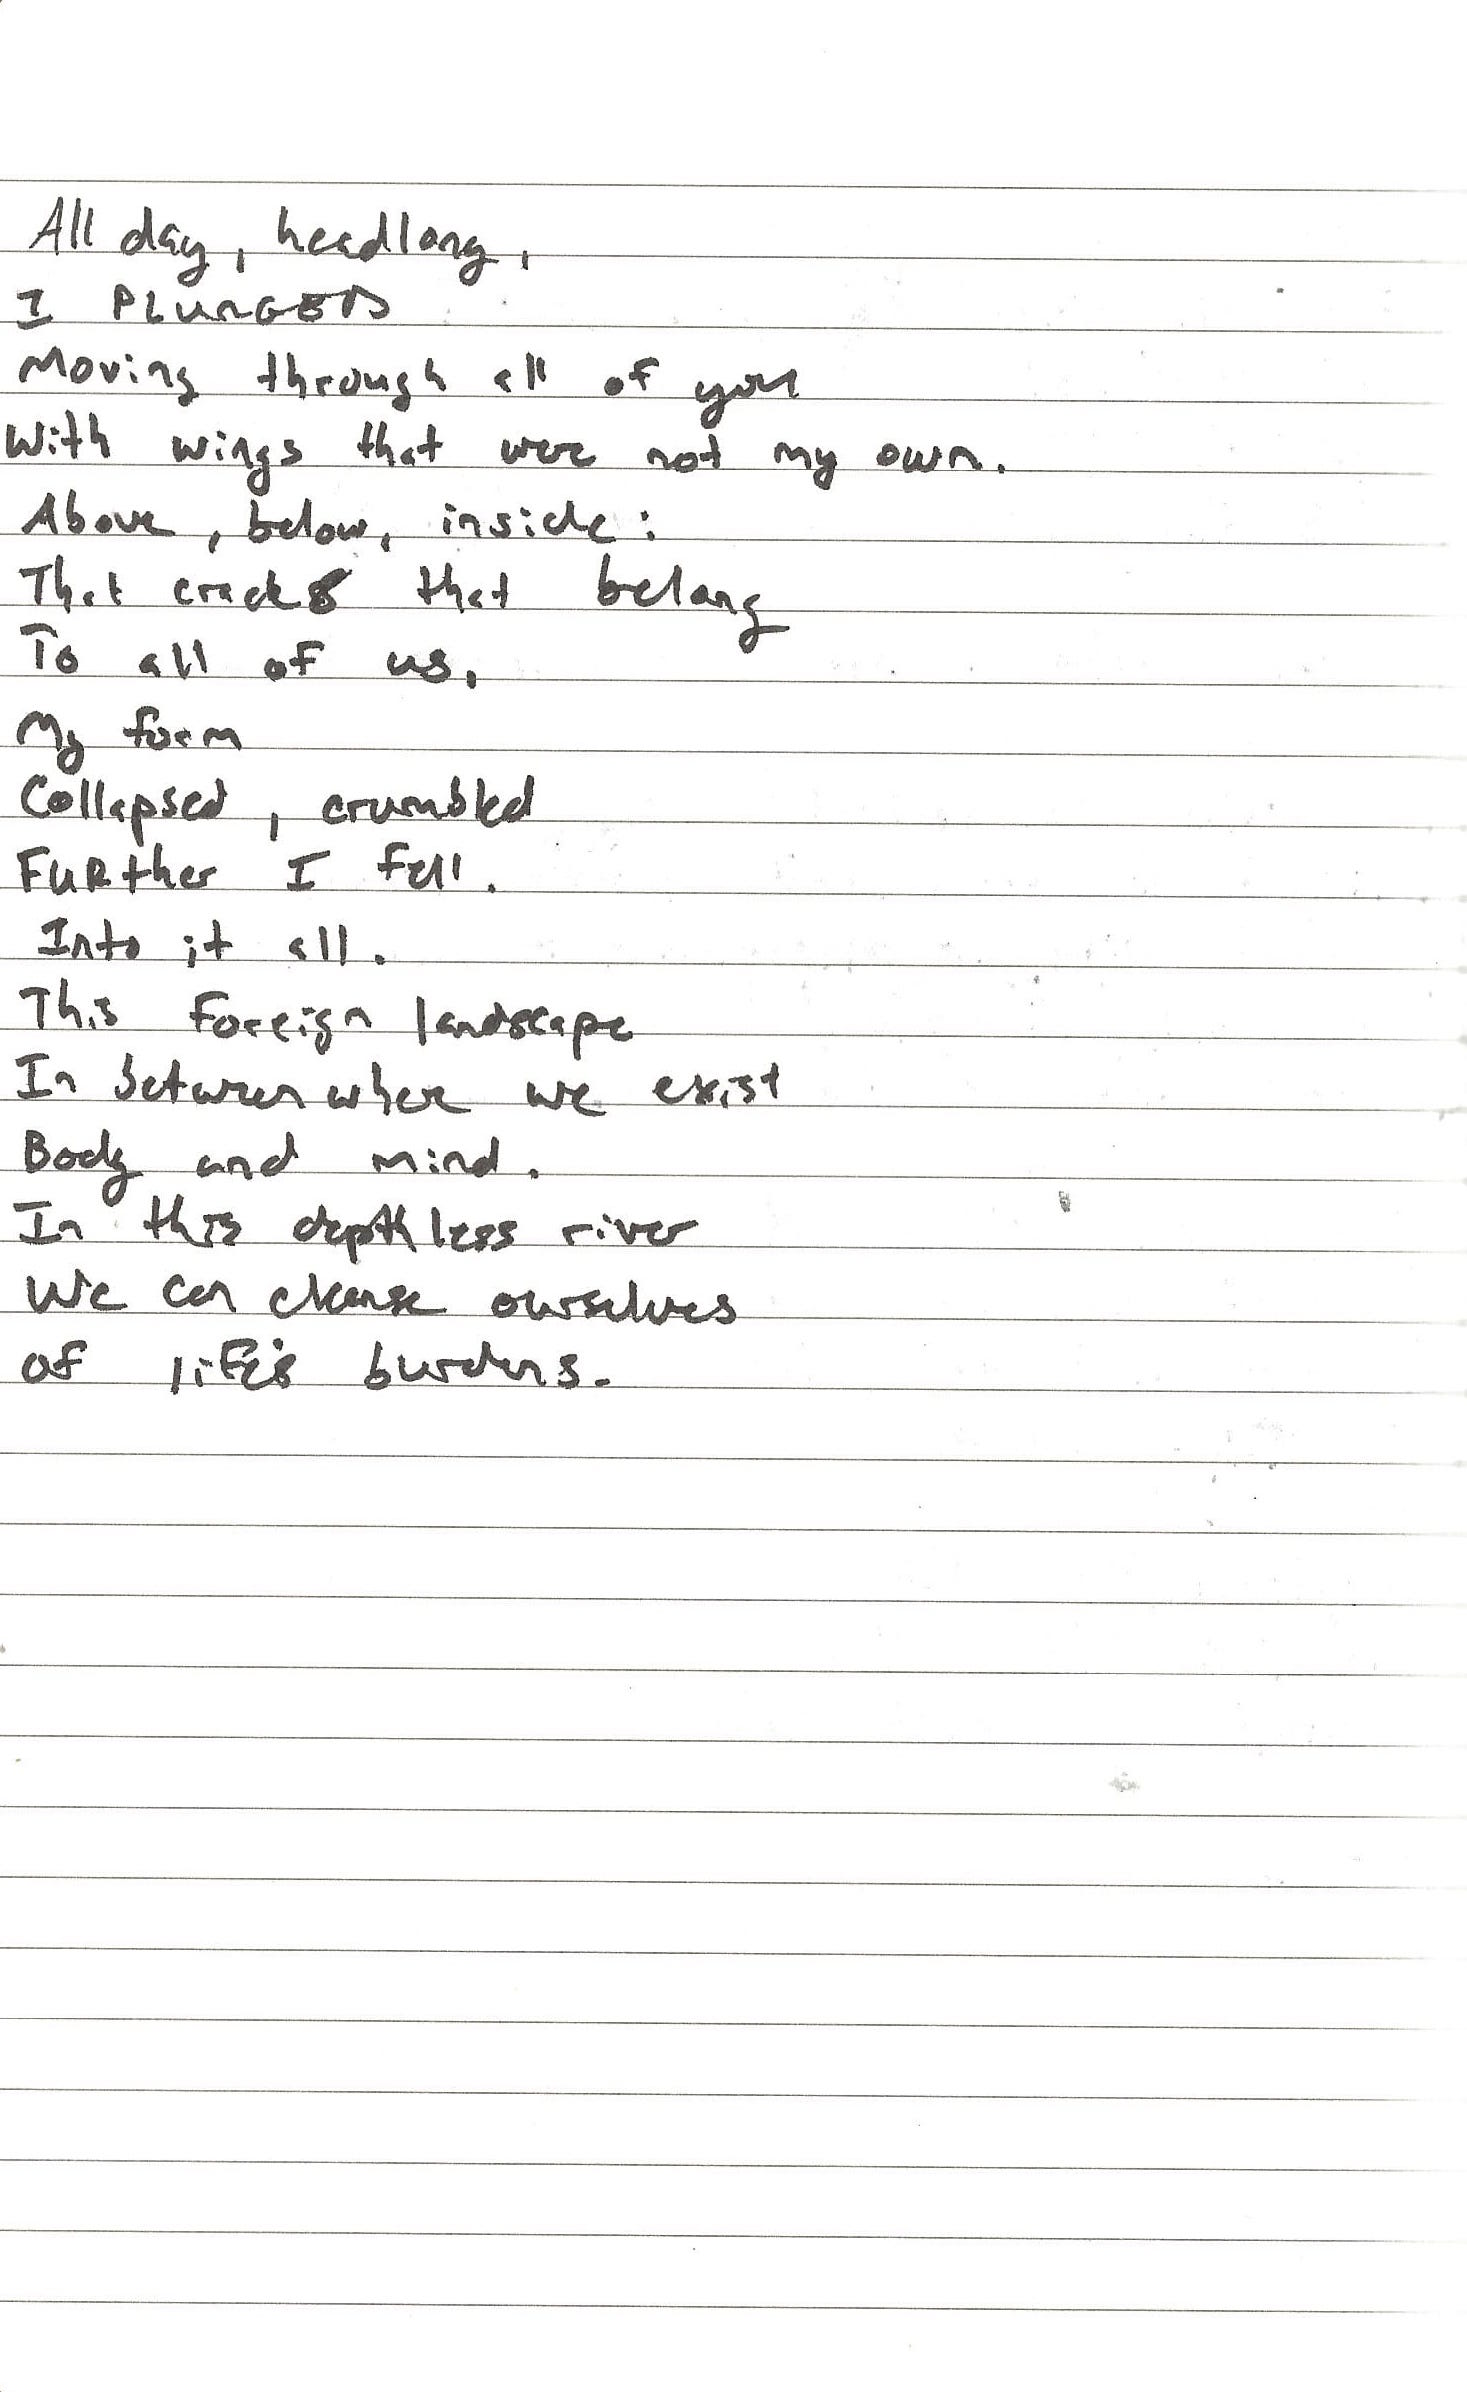 All day, headlong,
I PLUNGED
Moving through all of you
With wings that were not my own.
Above, below, inside:
That cracks that belong
To all of us,
My form
Collapsed, crumbled
FURther I fell.
Into it all.
This Foreign landscape
In between where we exist
Body and mind.
In this depthless river
We can cleanse ourselves
of life's burdens.